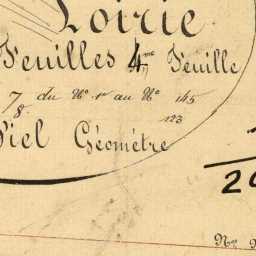 Loirie
Feuilles 4me Feuille
78 du No 1r au No 145
123
Piel Géomètre
20
No